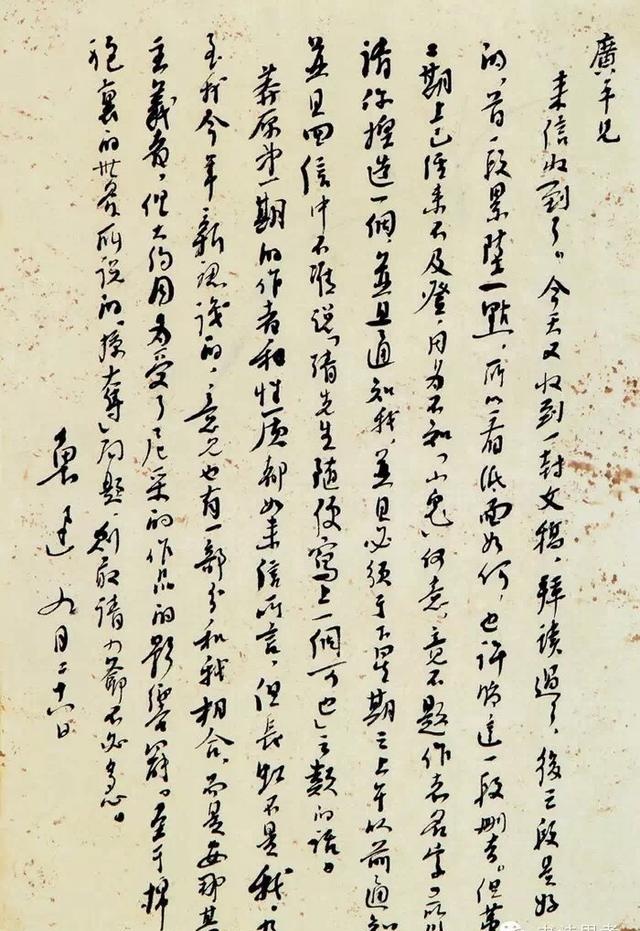 廣平兄
来信收到了。今天又收到一封文稿,拜讀過了,後三段是好
的,首一段累墜一點,所以看紙面如何,也許將這一段刪去。但第
二期上已經来不及登,因為不知「小鬼」何意,竟不題作者名字。所以
請你捏造一個,並且通知我,並且必須于下星期三上午以前通知
並且回信中不准說「請先生隨便寫上一個可也」之類的話。
莽原第一期的作者和性质都如来信所言,但長虹不是我,乃
是我今年新認識的,意見也有一部分和我相合,而是安那其
主義者。他大約因為受了尼采的作品的影響罷。至于棉
袍裏的世界所說的「掠奪」問題,則敢請少爺不必多心。
魯迅 月二十日